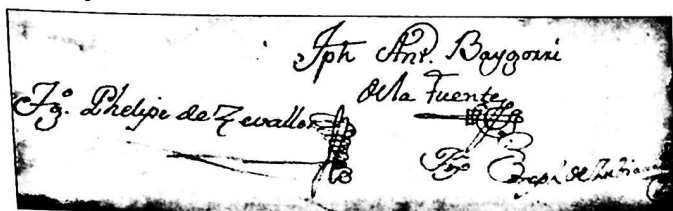 Jph Ant. Baygorri
de la Fuente
Tgo. Phelipe de Zevallos
Tgo